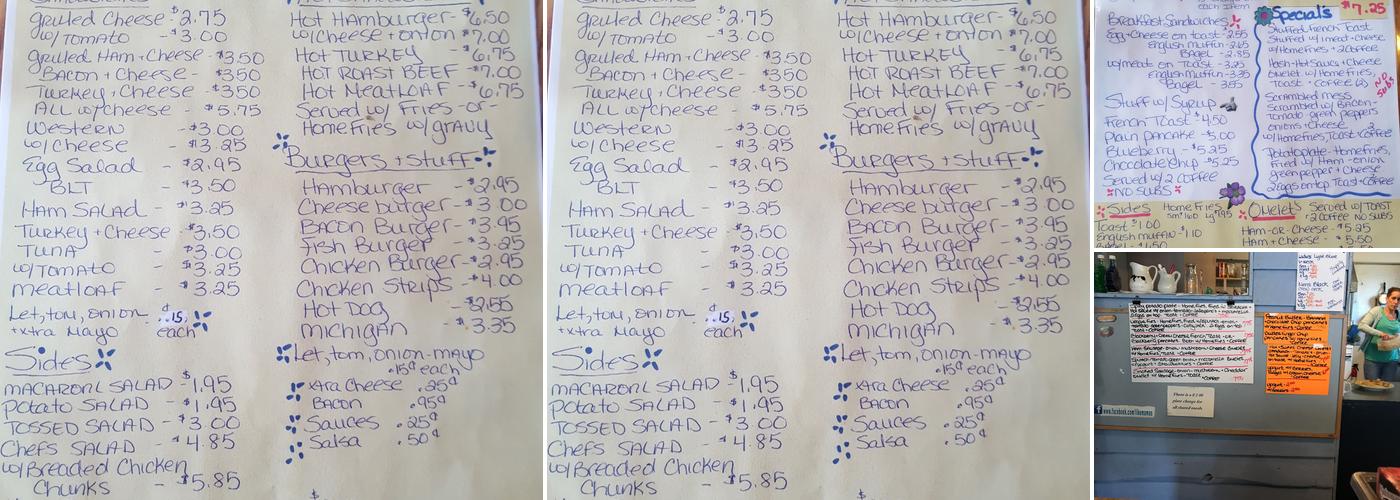 Grilled Cheese - $2.75
w/Tomato - $3.00
Grilled Ham+Cheese - $3.50
Bacon + Cheese - $350
Turkey + Cheese - $350
All w/Cheese - $5.75
Western - $3.00
w/Cheese - $3.25
Egg Salad - $2.95
BLT - $3.50
Ham Salad - $3.25
Turkey + Cheese - $3.50
Tuna - $3.00
w/Tomato - $3.25
Meatloaf - $3.25
Let, tom, onion $.15
+xtra Mayo each
Sides
Macaroni Salad - $1.95
Potato Salad - $1.95
Tossed Salad - $3.00
Chefs Salad - $4.85
w/Breaded Chicken
Chunks - $5.85
Hot Hamburger - $6.50
w/Cheese + onion $7.00
Hot Turkey - $6.75
Hot Roast Beef - $7.00
Hot Meatloaf - $6.75
Served w/ Fries -or-
Home Fries w/gravy
Burgers + stuff
Hamburger - $2.95
Cheese burger - $3.00
Bacon Burger - $3.95
Fish Burger - $3.25
Chicken Burger - $2.95
Chicken Strips - $4.00
Hot Dog - $2.55
Michigan - $3.35
Let, tom, onion-mayo
.15¢ each
xtra Cheese .25¢
Bacon .95¢
Sauces .25¢
Salsa .50¢
Grilled Cheese - $2.75
w/Tomato - $3.00
Grilled Ham+Cheese - $3.50
Bacon + Cheese - $350
Turkey + Cheese - $350
All w/Cheese - $5.75
Western - $3.00
w/Cheese - $3.25
Egg Salad - $2.95
BLT - $3.50
Ham Salad - $3.25
Turkey + Cheese - $3.50
Tuna - $3.00
w/Tomato - $3.25
Meatloaf - $3.25
Let, tom, onion $.15
+xtra Mayo each
Sides
Macaroni Salad - $1.95
Potato Salad - $1.95
Tossed Salad - $3.00
Chefs Salad - $4.85
w/Breaded Chicken
Chunks - $5.85
Hot Hamburger - $6.50
w/Cheese + onion $7.00
Hot Turkey - $6.75
Hot Roast Beef - $7.00
Hot Meatloaf - $6.75
Served w/ Fries -or-
Home Fries w/gravy
Burgers + stuff
Hamburger - $2.95
Cheese burger - $3.00
Bacon Burger - $3.95
Fish Burger - $3.25
Chicken Burger - $2.95
Chicken Strips - $4.00
Hot Dog - $2.55
Michigan - $3.35
Let, tom, onion-mayo
.15¢ each
xtra Cheese .25¢
Bacon .95¢
Sauces .25¢
Salsa .50¢
each Item
Breakfast Sandwiches
Egg + Cheese on toast - 2.55
English muffin - 2.65
Bagel - 2.85
w/meats on Toast - 3.25
English muffin - 3.35
Bagel - 3.55
Stuff w/ Syrup
French Toast $4.50
Plain pancake - $5.00
Blueberry - $5.25
Chocolate Chip - $5.25
Served w/ 2 Coffee
No Subs
Specials $7.25
Stuffed French Toast
Stuffed w/ meat + cheese
w/ Home Fries + 2 Coffee
Hash-Hot Sauce + Cheese
Omelet w/ Home Fries,
Toast + Coffee (2)
No Subs
Scrambled mess
Scrambled w/ Bacon-
Tomato green peppers
onions + Cheese
w/ Home Fries, Toast + Coffee
Potato plate - Home Fries,
Fried w/ Ham - onion
green pepper + Cheese
2 Eggs on top Toast + Coffee
Sides Home Fries
Toast $1.00
English muffin - $1.10
Omelets Served w/ Toast
+ 2 Coffee No Subs
Ham-or-Cheese - $5.25
Ham + Cheese - $5.50
There is a $ 2.00
plate charge for
all shared meals